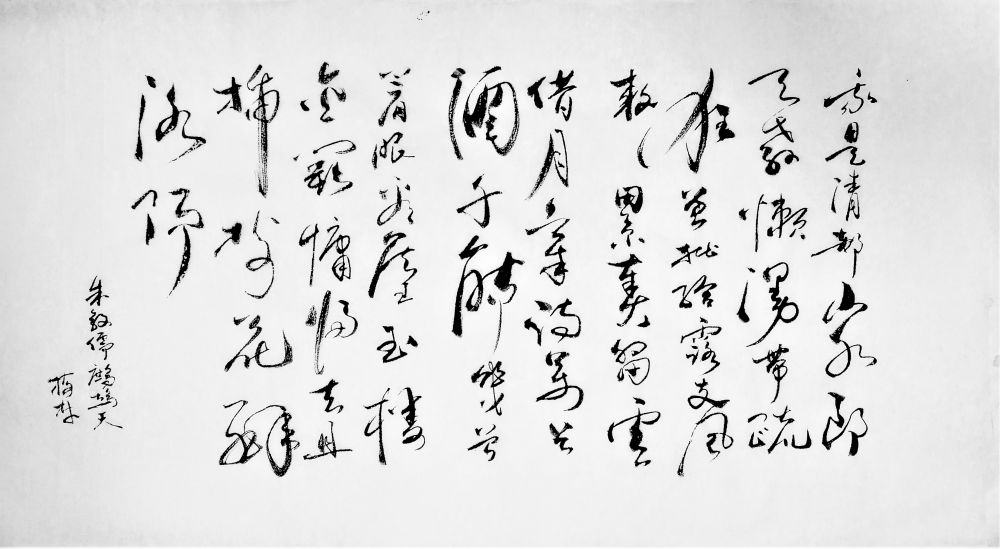 我是清都山水郎
天教懶漫帶疏
狂曾批給露支風
敕累奏留雲
借月章詩萬首
酒千觴幾曾
着眼看侯王玉樓
金闕慵歸去且
插梅花醉
洛陽
朱敦儒鷓鴣天